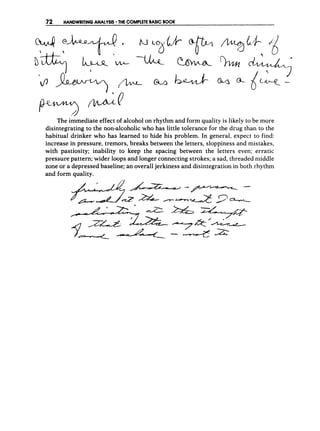 72 HANDWRITING ANALYSIS - THE COMPLETE BASIC BOOK
and cheerful. Night after night of
sitting here in the coma I'm drinking
is leaving me as bent as a five-
penny nail
The immediate effect of alcohol on rhythm and form quality is likely to be more
disintegrating to the non-alcoholic who has little tolerance for the drug than to the
habitual drinker who has learned to hide his problem. In general, expect to find:
increase in pressure, tremors, breaks between the letters, sloppiness and mistakes,
with pastiosity; inability to keep the spacing between the letters even; erratic
pressure pattern; wider loops and longer connecting strokes; a sad, threaded middle
zone or a depressed baseline; an overall jerkiness and disintegration in both rhythm
and form quality.
friendly hostess - person -
and at the moment I am
salivating at the thought
of that butter
and salad - not to